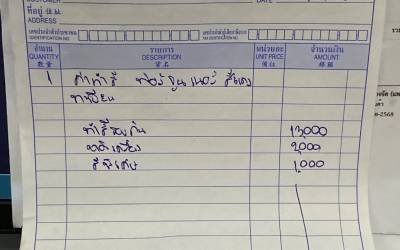 CUSTOMER
ที่อยู่ 住址
ADDRESS
เลขประจำตัวประชาชน
IDENTIFICATION NO.
เลขประจำตัวผู้เสียภาษีอากร
TAX IDENTIFICATION NO.
จำนวน รายการ หน่วยละ จำนวนเงิน
QUANTITY DESCRIPTION UNIT PRICE AMOUNT
數量 貨名 價位 銀額
1 ค่าทำสี ฟอร์จูนเนอร์ สีแดง
ทะเบียน
ทำสีรอบคัน 13,000
2,000
สีพิเศษ 1,000
-2568